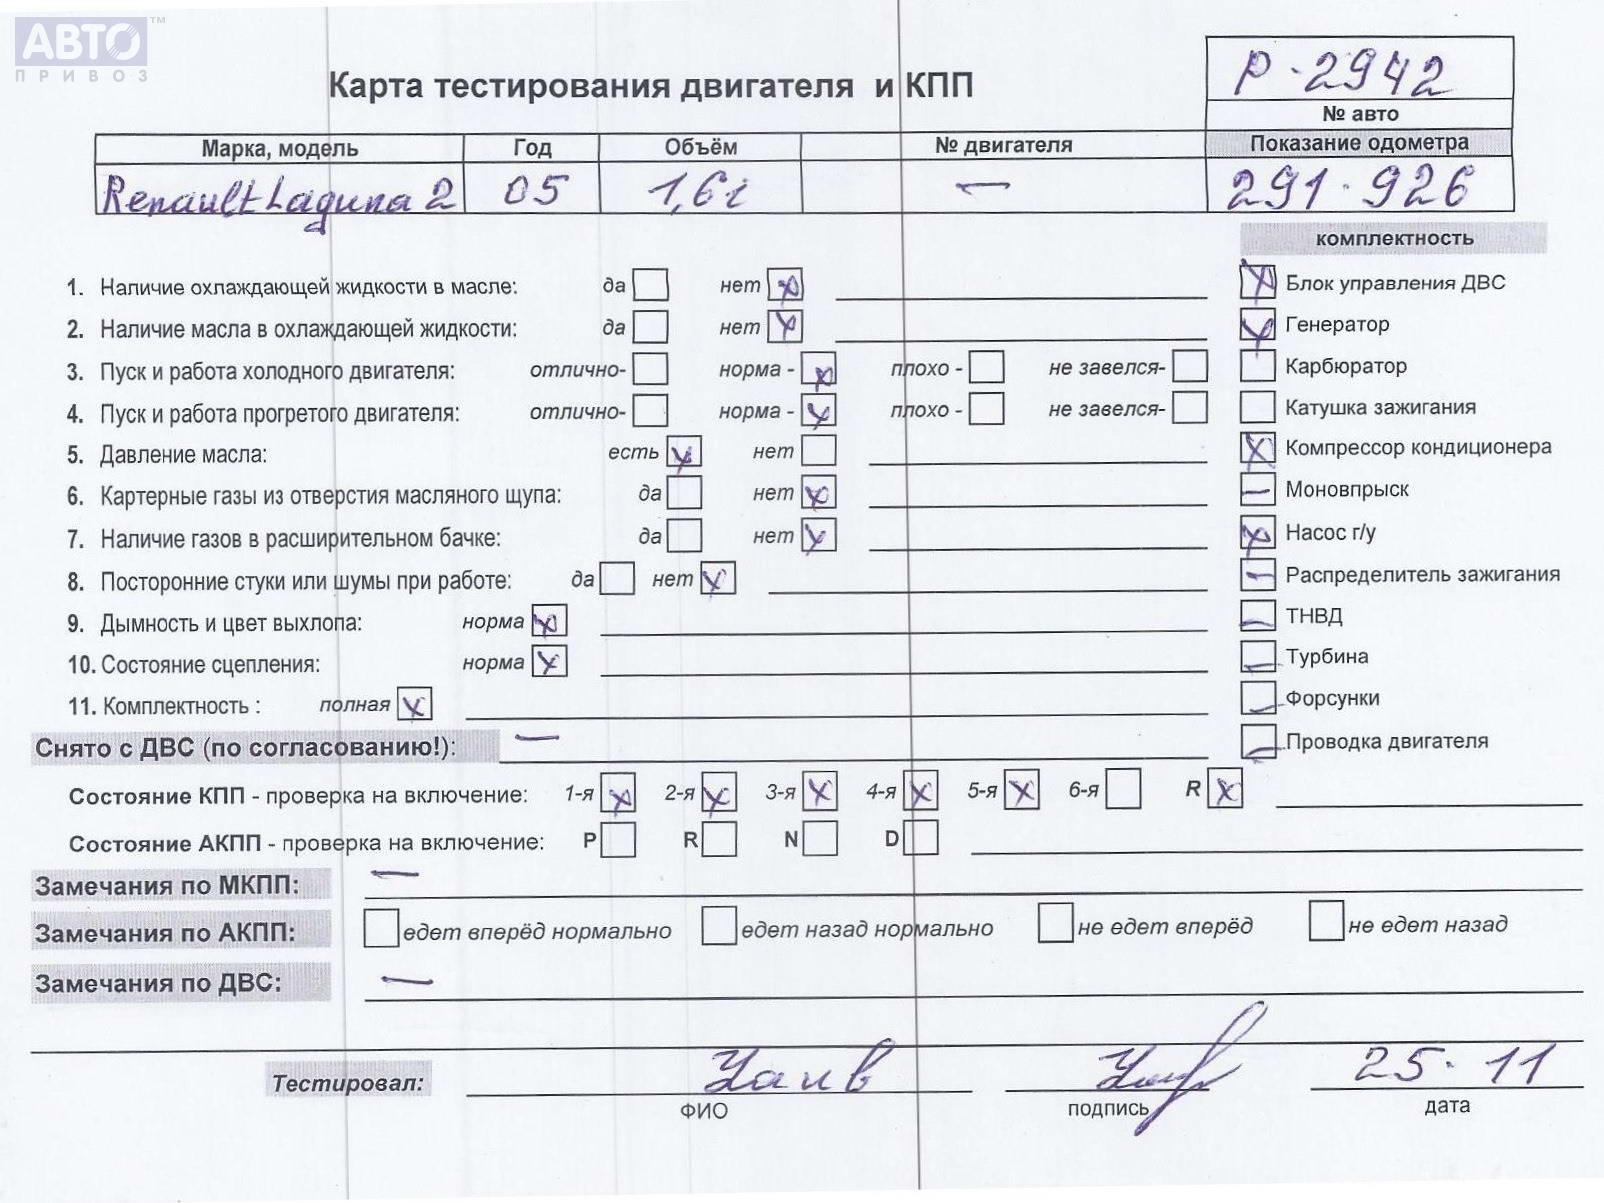 АВТО™
ПРИВОЗ
Карта тестирования двигателя и КПП
Р-2942
№ авто
Марка, модель Год Объём № двигателя Показание одометра
Renault Laguna 2 05 1,6i — 291·926
комплектность
1. Наличие охлаждающей жидкости в масле: да нет x
2. Наличие масла в охлаждающей жидкости: да нет x
3. Пуск и работа холодного двигателя: отлично- норма - x плохо - не завелся-
4. Пуск и работа прогретого двигателя: отлично- норма - x плохо - не завелся-
5. Давление масла: есть x нет
6. Картерные газы из отверстия масляного щупа: да нет x
7. Наличие газов в расширительном бачке: да нет x
8. Посторонние стуки или шумы при работе: да нет x
9. Дымность и цвет выхлопа: норма x
10. Состояние сцепления: норма x
11. Комплектность : полная x
x Блок управления ДВС
x Генератор
Карбюратор
Катушка зажигания
x Компрессор кондиционера
— Моновпрыск
x Насос г/у
— Распределитель зажигания
— ТНВД
— Турбина
— Форсунки
— Проводка двигателя
Снято с ДВС (по согласованию!): —
Состояние КПП - проверка на включение: 1-я x 2-я x 3-я x 4-я x 5-я x 6-я R x
Состояние АКПП - проверка на включение: P R N D
Замечания по МКПП: —
Замечания по АКПП: едет вперёд нормально едет назад нормально не едет вперёд не едет назад
Замечания по ДВС: —
Тестировал: 25·11
ФИО подпись дата